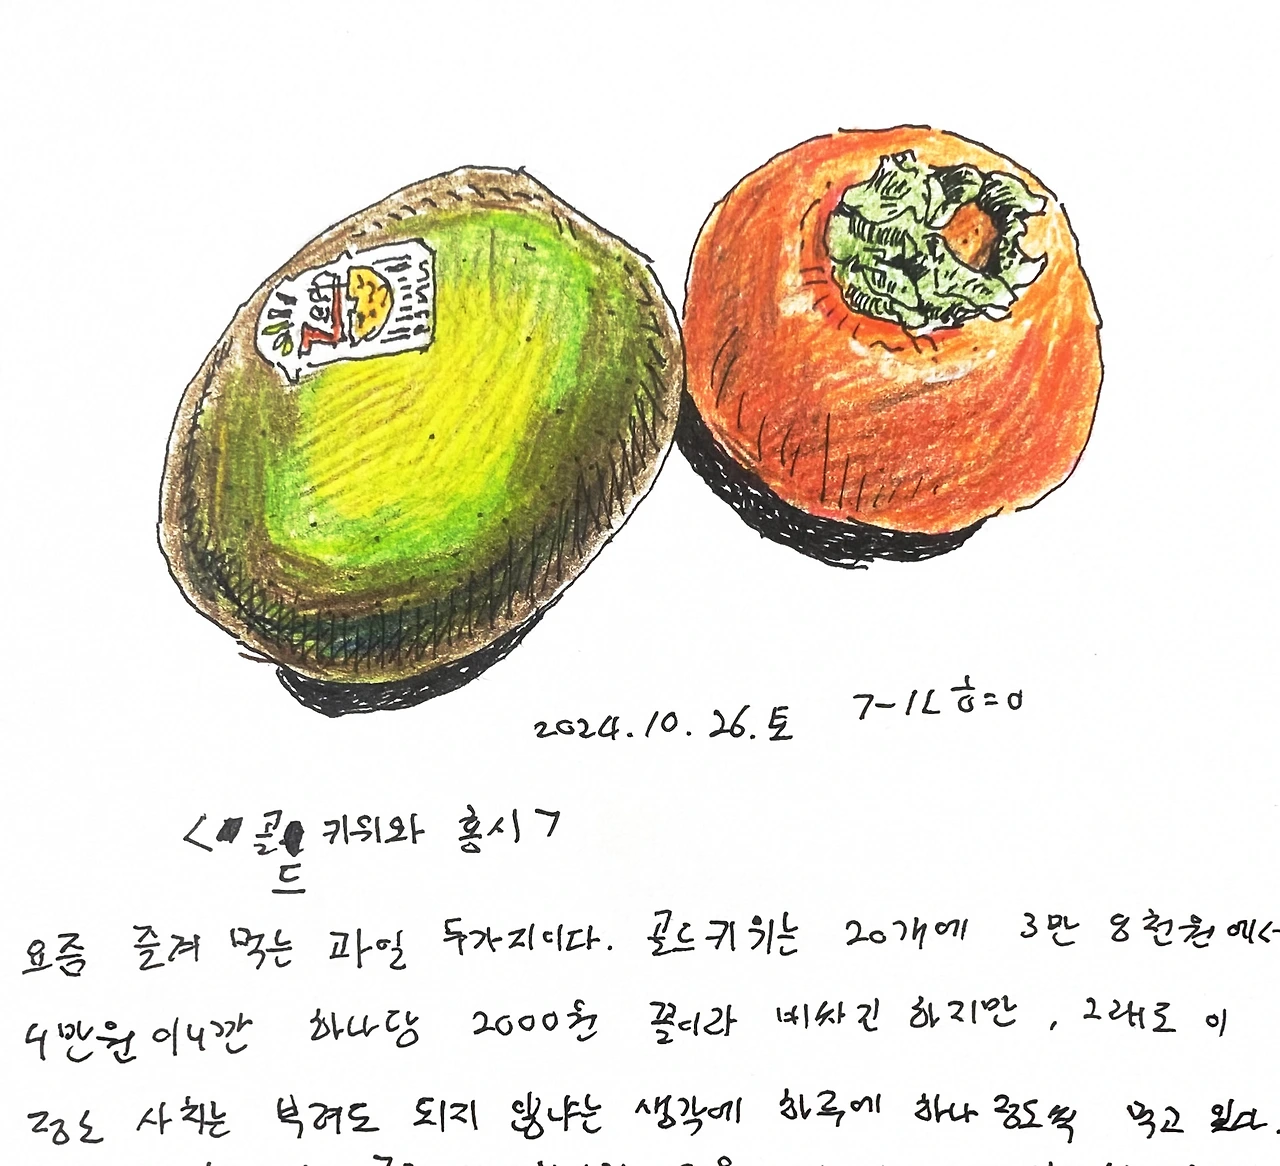 Zespri
2024.10.26.토
<골드 키위와 홍시>
요즘 즐겨 먹는 과일 두가지이다. 골드키위는 20개에 3만 8천원에서
4만원이니깐 하나당 2000원 꼴이라 비싸긴 하지만, 그래도 이
정도 사치는 부려도 되지 않냐는 생각에 하루에 하나 정도씩 먹고 있다.